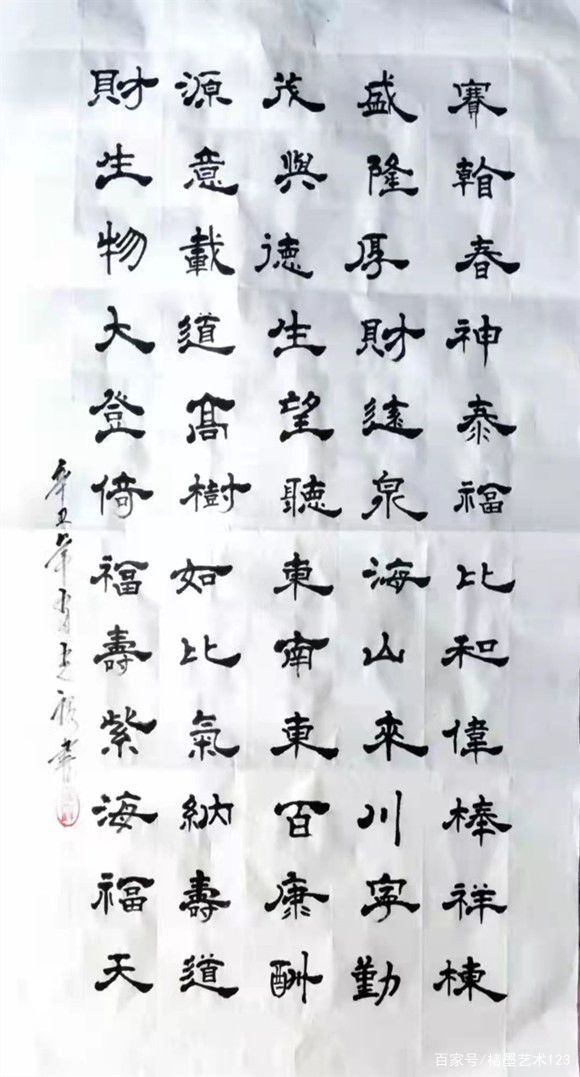 賽翰春神泰福比和偉棒祥棟
盛隆厚財遠泉海山來川寧勤
茂與德生望聽東南東百康酬
源意載道高樹如比氣納壽道
財生物大登倚福壽紫海福天
辛丑年 書
百家号/楮墨艺术123